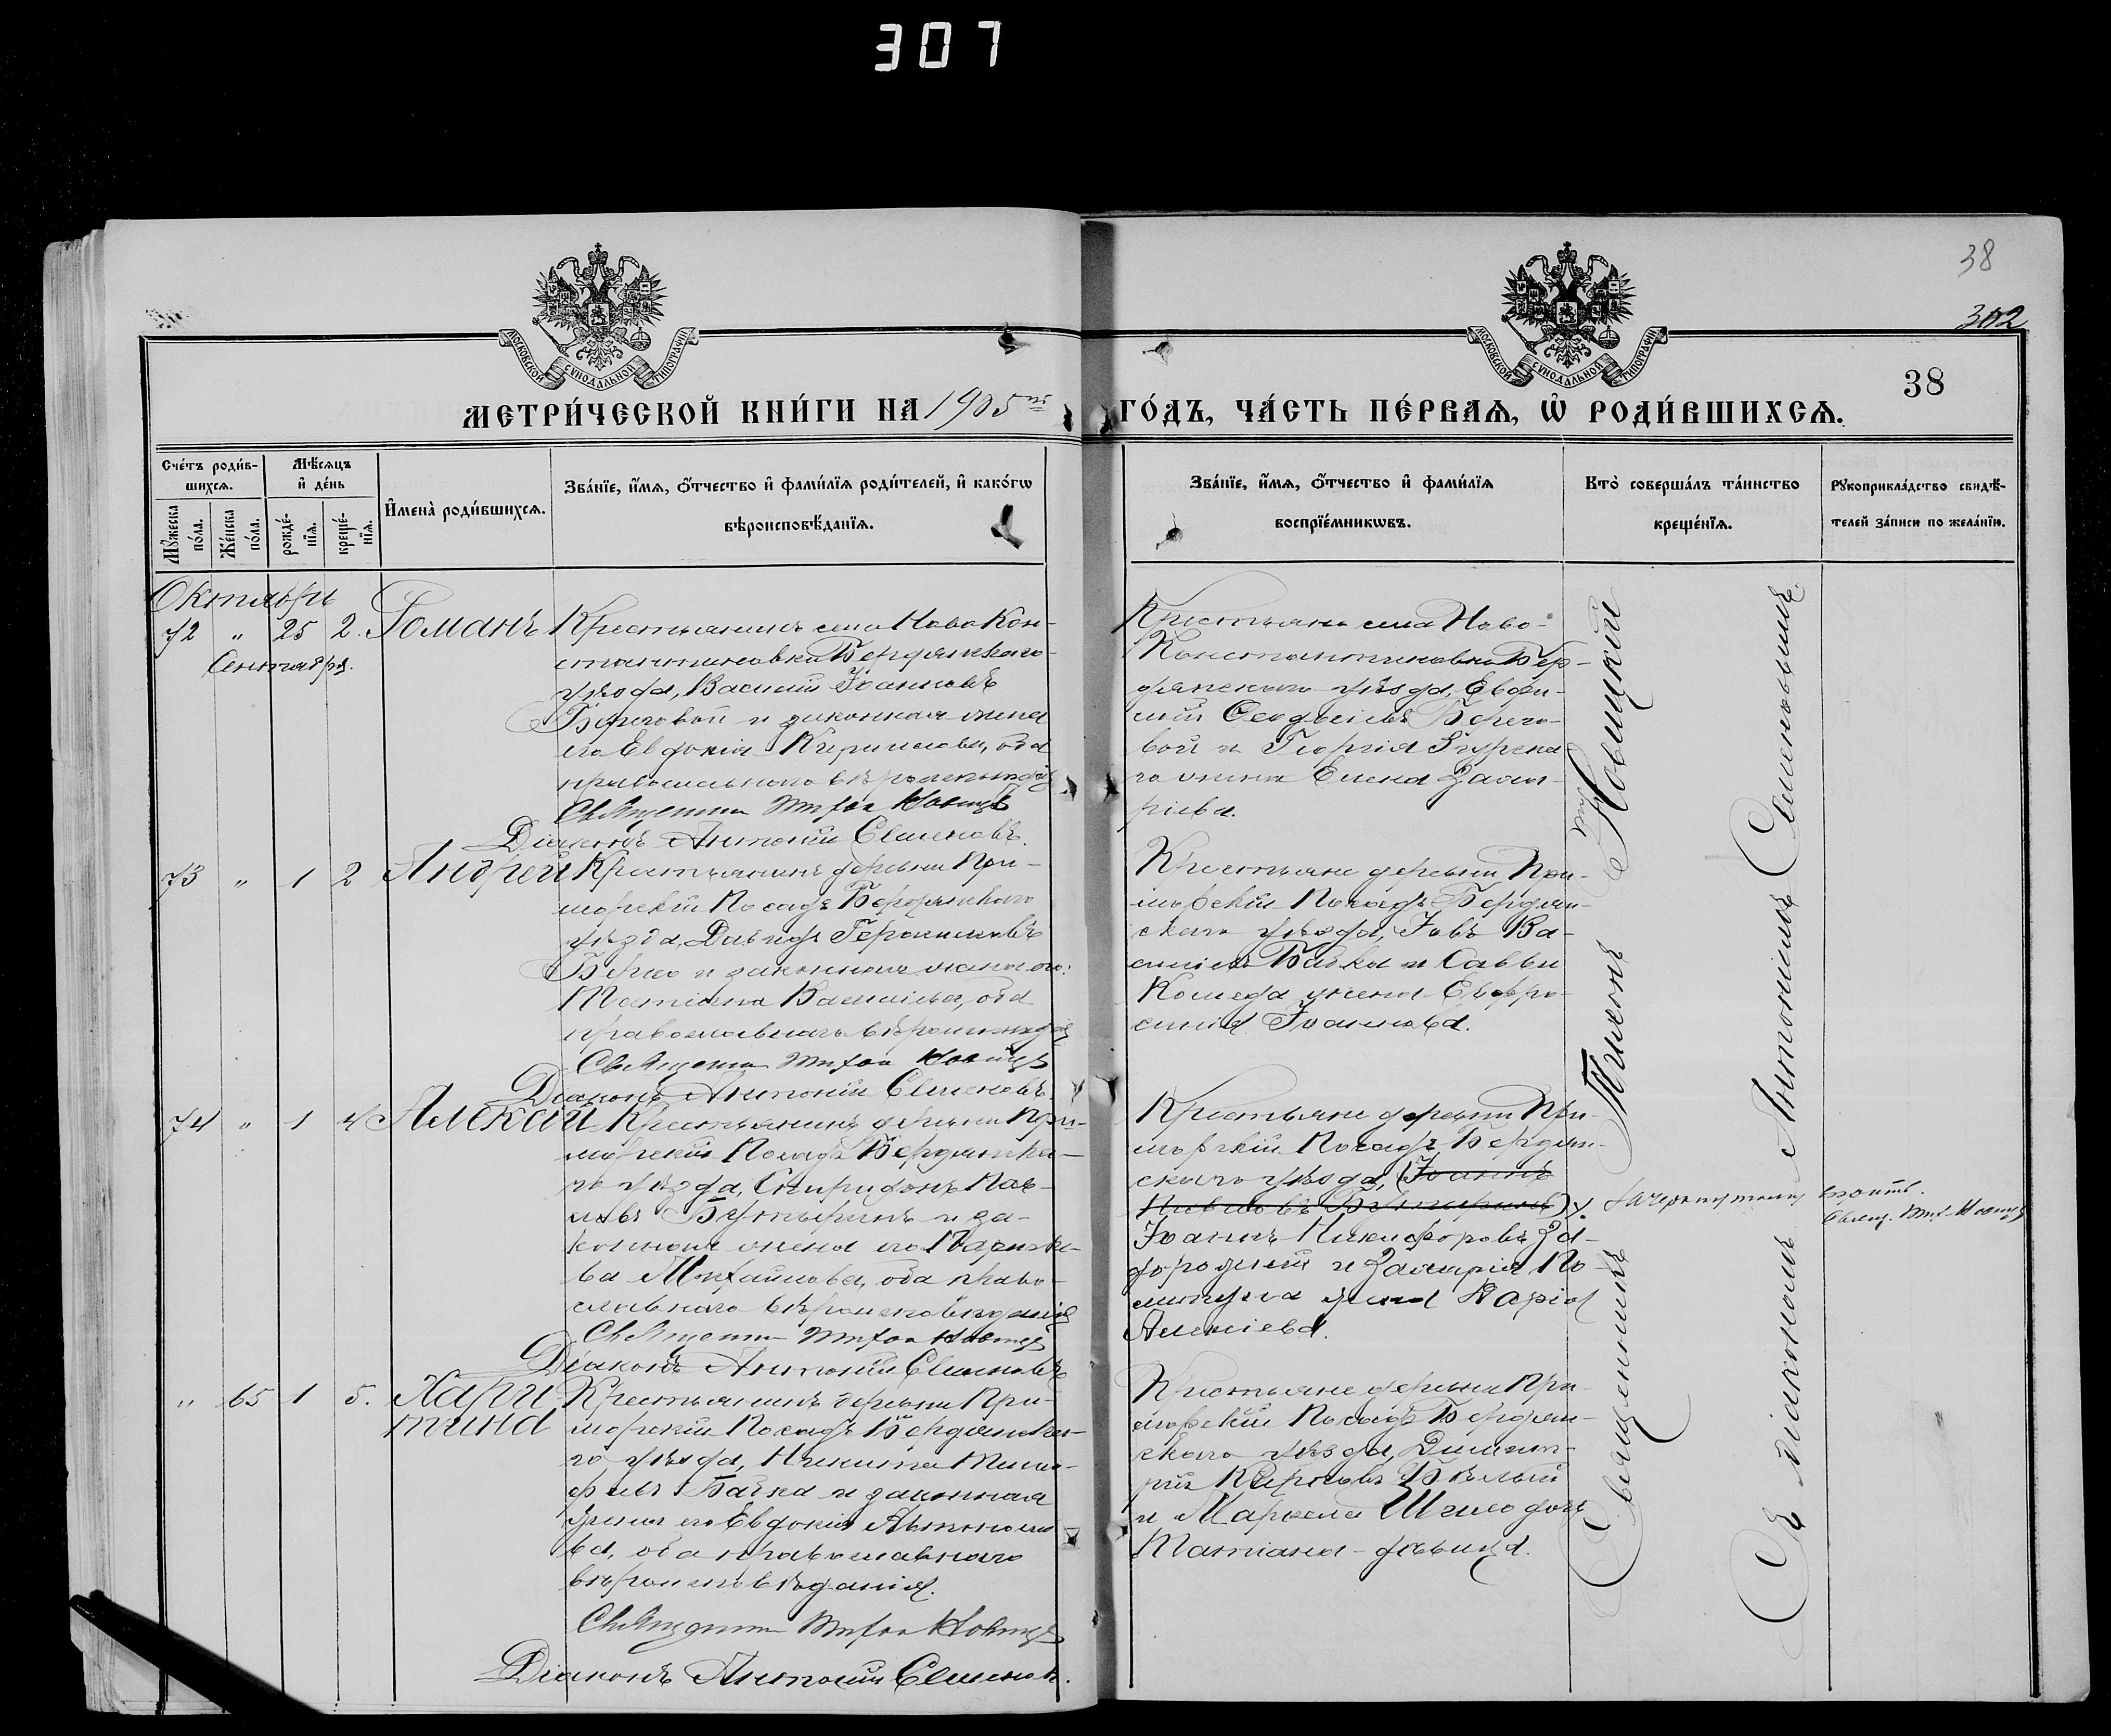 307
38
302
38
МОСКОВСКОЙ СѴНОДАЛЬНОЙ ТИПОГРАФІИ
МОСКОВСКОЙ СѴНОДАЛЬНОЙ ТИПОГРАФІИ
МЕТРИ́ЧЕСКОЙ КНИ́ГИ НА 1905 ГО́ДЪ, ЧА́СТЬ ПЕ́РВАѦ, Ѡ҆ РОДИ́ВШИХСѦ.
Сче́тъ роди́в-
шихсѧ.
Мꙋ́жеска по́ла.
Же́нска по́ла.
Мѣ́сѧцъ
и҆ де́нь
рожде́-
нїѧ.
креще́-
нїѧ.
И҆мена̀ роди́вшихсѧ.
Зва́нїе, и҆́мѧ, ѻ҆́тчество и҆ фами́лїѧ роди́телей, и҆ како́гѡ
вѣроисповѣ́данїѧ.
Зва́нїе, и҆́мѧ, ѻ҆́тчество и҆ фами́лїѧ
воспрїе́мникѡвъ.
Кто̀ соверша́лъ та́инство
креще́нїѧ.
Рꙋкоприкла́дство свидѣ́-
телей за́писи по жела́нїю.
Октябрь
72 " 25 2. Романъ
Сентября.
Крестьянинъ села Ново Кон-
стантиновки Бердянскаго
уѣзда, Василій Іоанновъ
Береговой и законная жена
его Евдокія Кириллова, оба
православнаго вѣроисповѣданія
Священникъ Тихон Новицкій
Діаконъ Антоній Семеновъ.
Крестьяне села Ново-
Константиновки Бер-
дянскаго уѣзда, Евфи-
мій Ѳеодосіевъ Берего-
вой и Георгія
жена Елена Заха-
ріева.
73 " 1 2 Андрей
Крестьянинъ деревни При-
морскій Посадъ Бердянскаго
уѣзда, Давидъ Герасимовъ
и законная жена его
Татіана Василіева, оба
православнаго вѣроисповѣданія
Священникъ Тихон Новицкій
Діаконъ Антоній Семеновъ.
Крестьяне деревни При-
морскій Посадъ Бердян-
скаго уѣзда, Іовъ Ва-
силіевъ Бабка и Саввы
жена Евфро-
синія Іоаннова.
74 " 1 4 Алексій
Крестьянинъ деревни При-
морскій Посадъ Бердянска-
го уѣзда, Спиридонъ Пав-
ловъ Бутыринъ и за-
конная жена его Параске-
ва Михайлова, оба право-
славнаго вѣроисповѣданія
Священникъ Тихон Новицкій
Діаконъ Антоній Семеновъ
Крестьяне деревни При-
морскій Посадъ Бердян-
скаго уѣзда, (Іоаннъ
Павловъ Бутыринъ)
Іоаннъ Никифоровъ За-
дорожній и Захарія
жена Марія
Алексіева.
" 65 1 5. Хари-
тина
Крестьянинъ деревни При-
морскій Посадъ Бердянска-
го уѣзда, Никита Тимо-
феевъ Бабка и законная
жена его Евдокія Автономо-
ва, оба православнаго
вѣроисповѣданія.
Священникъ Тихон Новицкій
Діаконъ Антоній Семеновъ.
Крестьяне деревни При-
морскій Посадъ Бердян-
скаго уѣзда, Димит-
рій Карповъ Бѣлый
и Маркела дочь
Татіана - дѣвица.
Священникъ Тихонъ Новицкій
Съ діакономъ Антоніемъ Семеновымъ